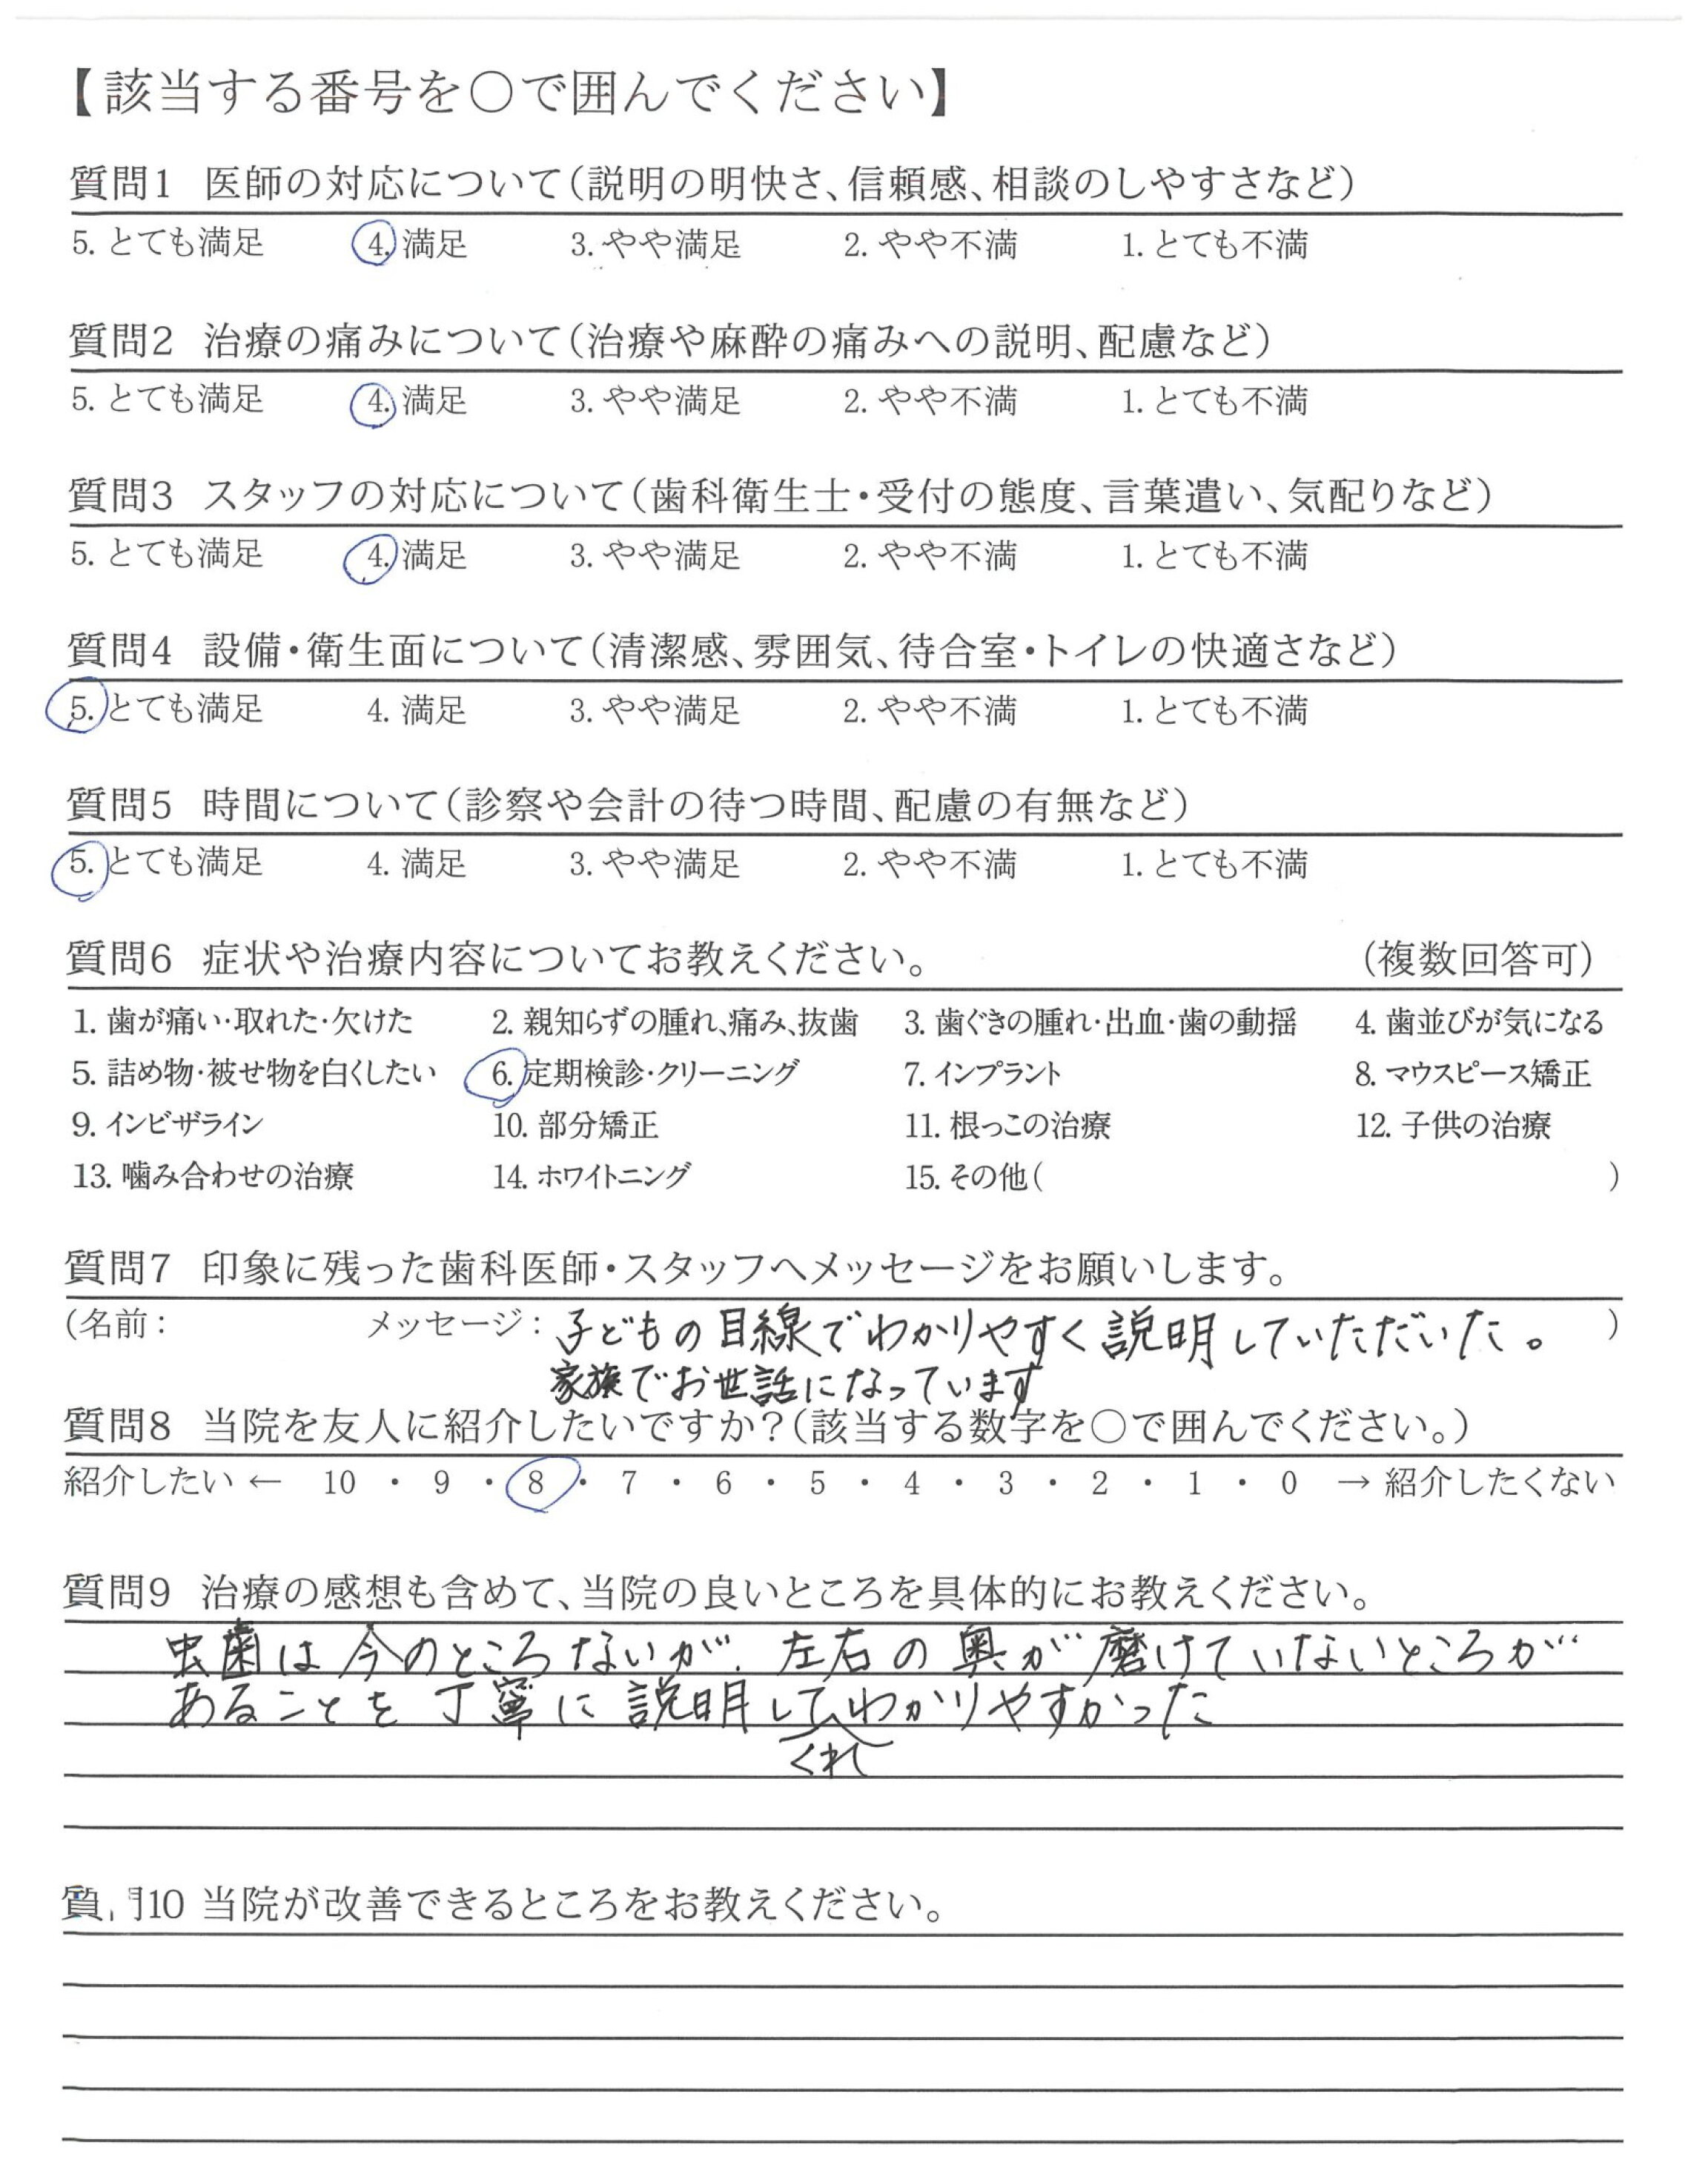 【該当する番号を○で囲んでください】
質問1 医師の対応について（説明の明快さ、信頼感、相談のしやすさなど）
5. とても満足 4. 満足 3. やや満足 2. やや不満 1. とても不満
質問2 治療の痛みについて（治療や麻酔の痛みへの説明、配慮など）
5. とても満足 4. 満足 3. やや満足 2. やや不満 1. とても不満
質問3 スタッフの対応について（歯科衛生士・受付の態度、言葉遣い、気配りなど）
5. とても満足 4. 満足 3. やや満足 2. やや不満 1. とても不満
質問4 設備・衛生面について（清潔感、雰囲気、待合室・トイレの快適さなど）
5. とても満足 4. 満足 3. やや満足 2. やや不満 1. とても不満
質問5 時間について（診察や会計の待つ時間、配慮の有無など）
5. とても満足 4. 満足 3. やや満足 2. やや不満 1. とても不満
質問6 症状や治療内容についてお教えください。 （複数回答可）
1. 歯が痛い・取れた・欠けた 2. 親知らずの腫れ、痛み、抜歯 3. 歯ぐきの腫れ・出血・歯の動揺 4. 歯並びが気になる
5. 詰め物・被せ物を白くしたい 6. 定期検診・クリーニング 7. インプラント 8. マウスピース矯正
9. インビザライン 10. 部分矯正 11. 根っこの治療 12. 子供の治療
13. 噛み合わせの治療 14. ホワイトニング 15. その他（ ）
質問7 印象に残った歯科医師・スタッフへメッセージをお願いします。
（名前： メッセージ：子どもの目線でわかりやすく説明していただいた。 ）
家族でお世話になっています
質問8 当院を友人に紹介したいですか？（該当する数字を○で囲んでください。）
紹介したい ← 10 ・ 9 ・ 8 ・ 7 ・ 6 ・ 5 ・ 4 ・ 3 ・ 2 ・ 1 ・ 0 → 紹介したくない
質問9 治療の感想も含めて、当院の良いところを具体的にお教えください。
虫歯は今のところないが、左右の奥が磨けていないところが
あることを丁寧に説明してわかりやすかった
くれ
質問10 当院が改善できるところをお教えください。